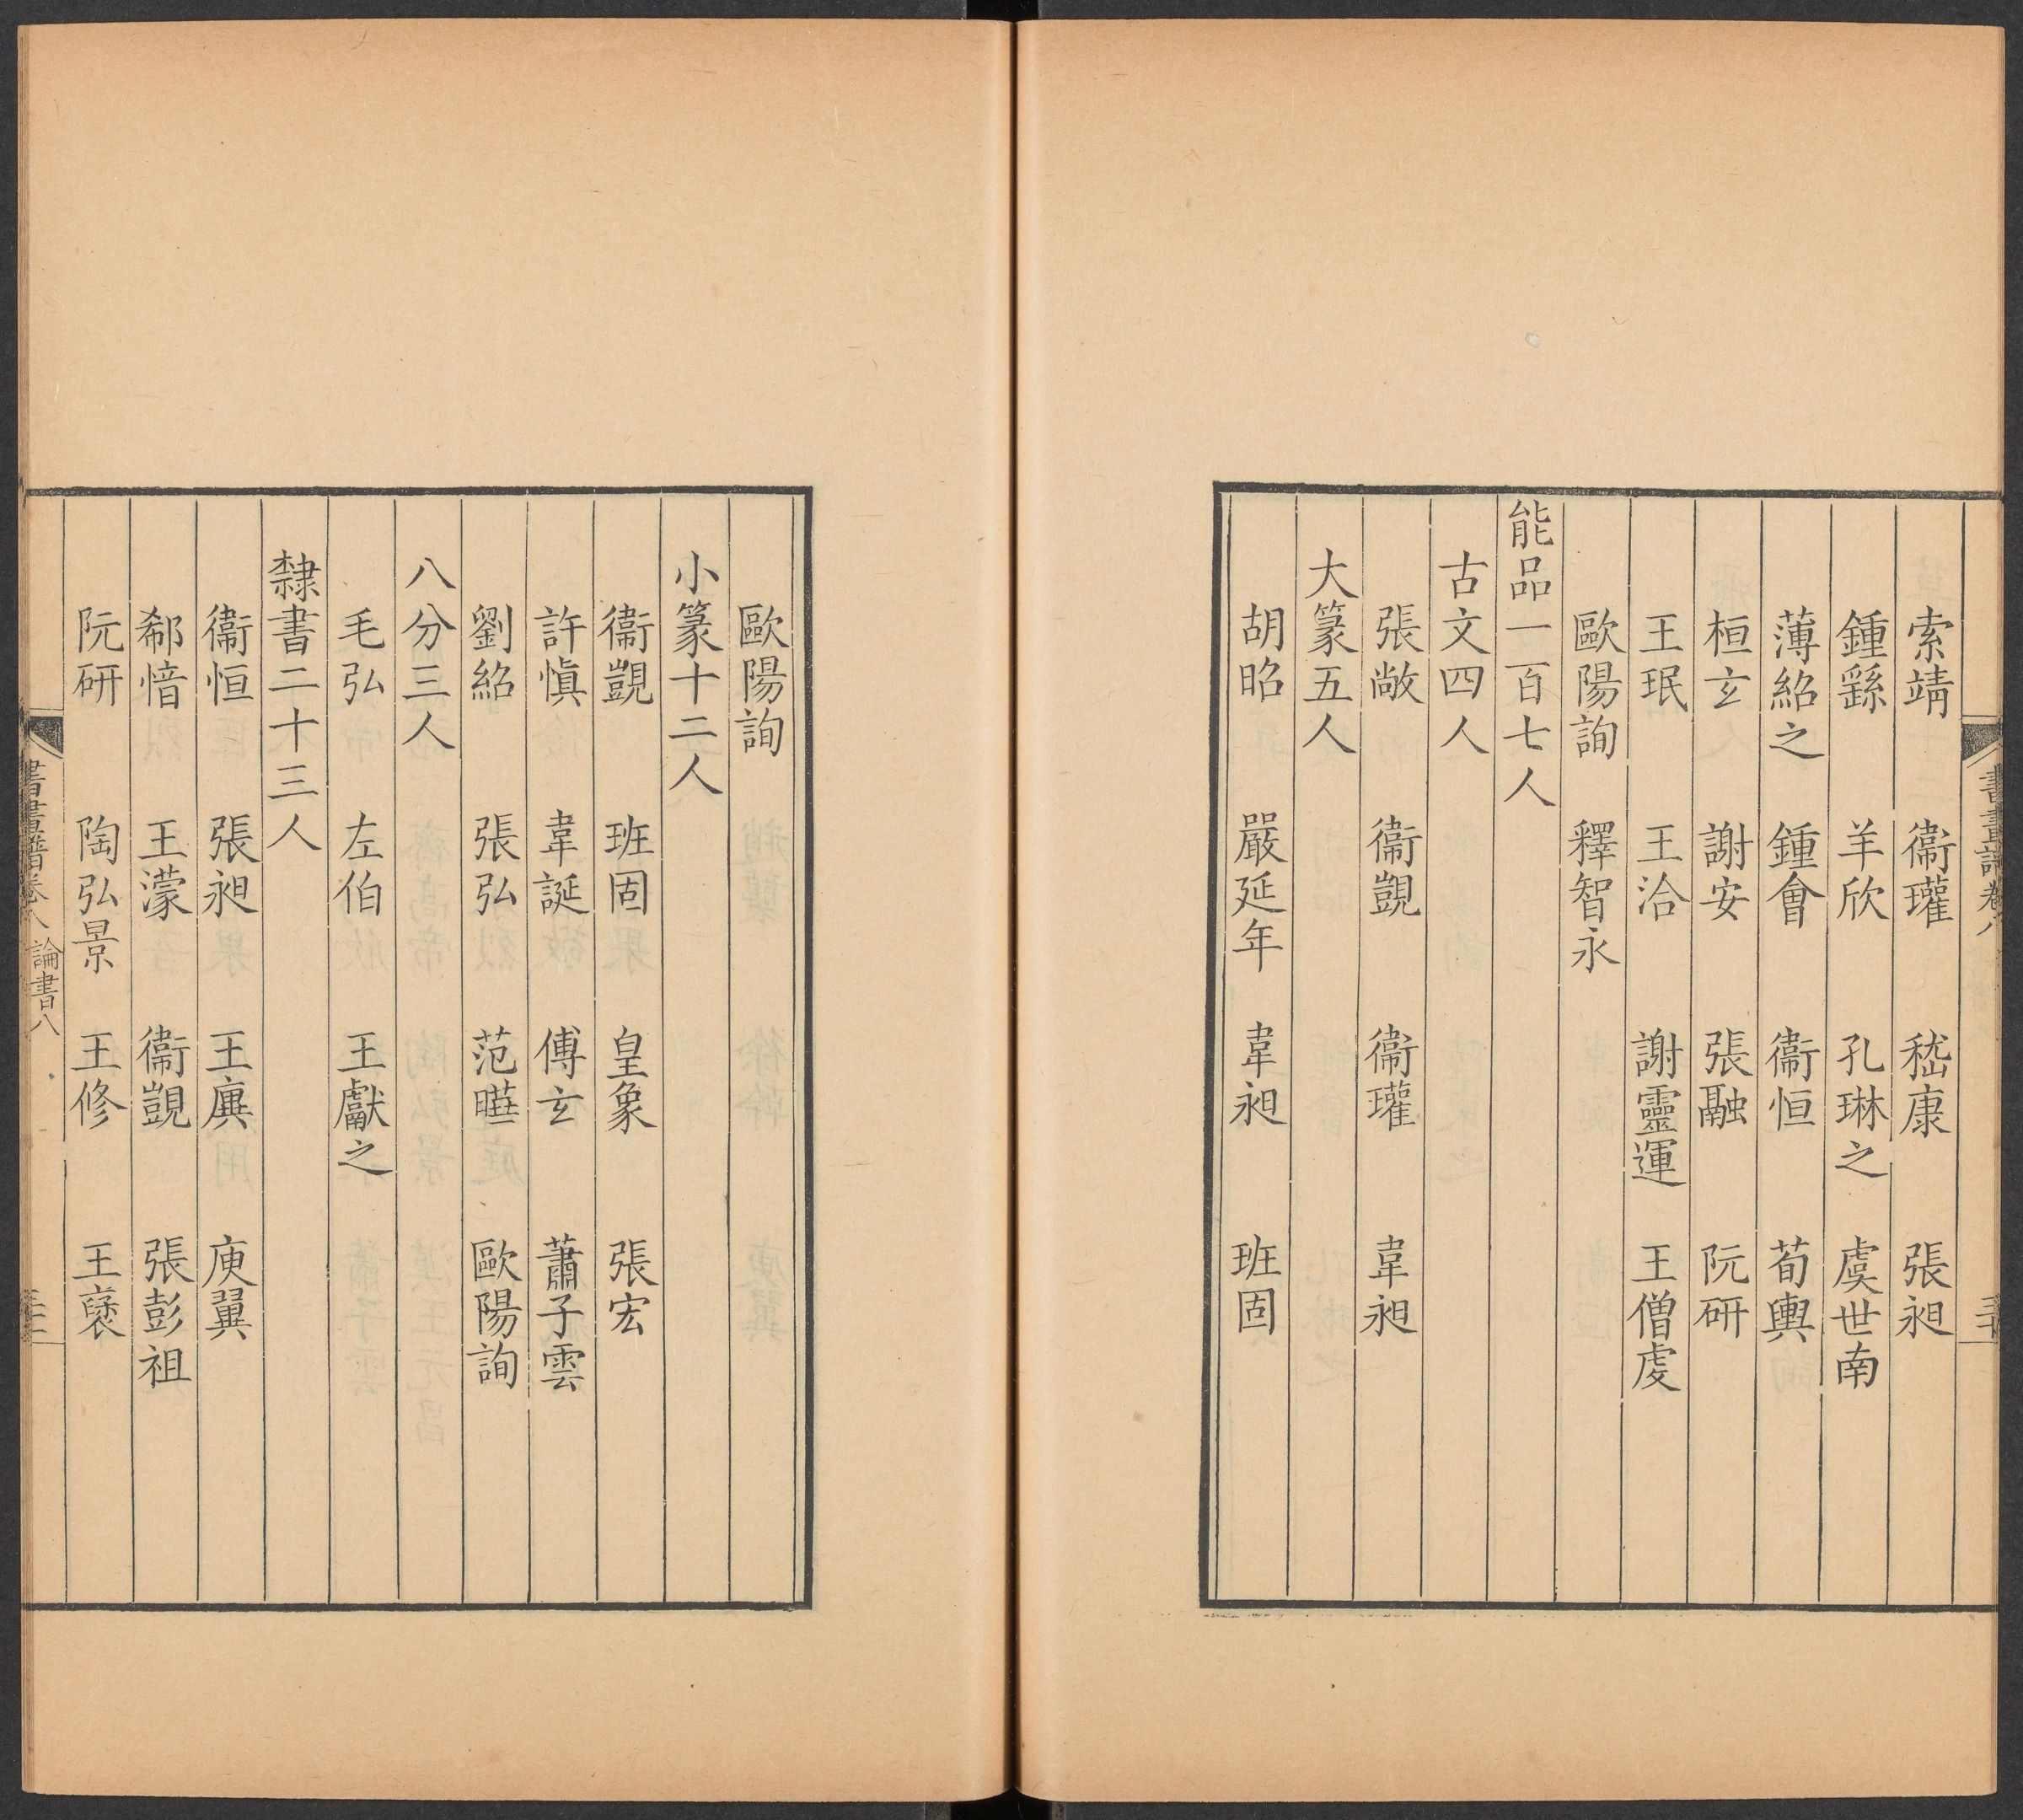 書畫譜卷八
索靖 衞瓘 嵇康 張昶
鍾繇 羊欣 孔琳之 虞世南
薄紹之 鍾會 衞恒 荀輿
桓玄 謝安 張融 阮研
王珉 王洽 謝靈運 王僧虔
歐陽詢 釋智永
能品一百七人
古文四人
張敞 衞覬 衞瓘 韋昶
大篆五人
胡昭 嚴延年 韋昶 班固
歐陽詢
小篆十二人
衞覬 班固 皇象 張宏
許慎 韋誕 傅玄 蕭子雲
劉紹 張弘 范曄 歐陽詢
八分三人
毛弘 左伯 王獻之
隸書二十三人
衞恒 張昶 王廙 庾翼
郗愔 王濛 衞覬 張彭祖
阮研 陶弘景 王修 王襃
書畫譜卷八 論書八